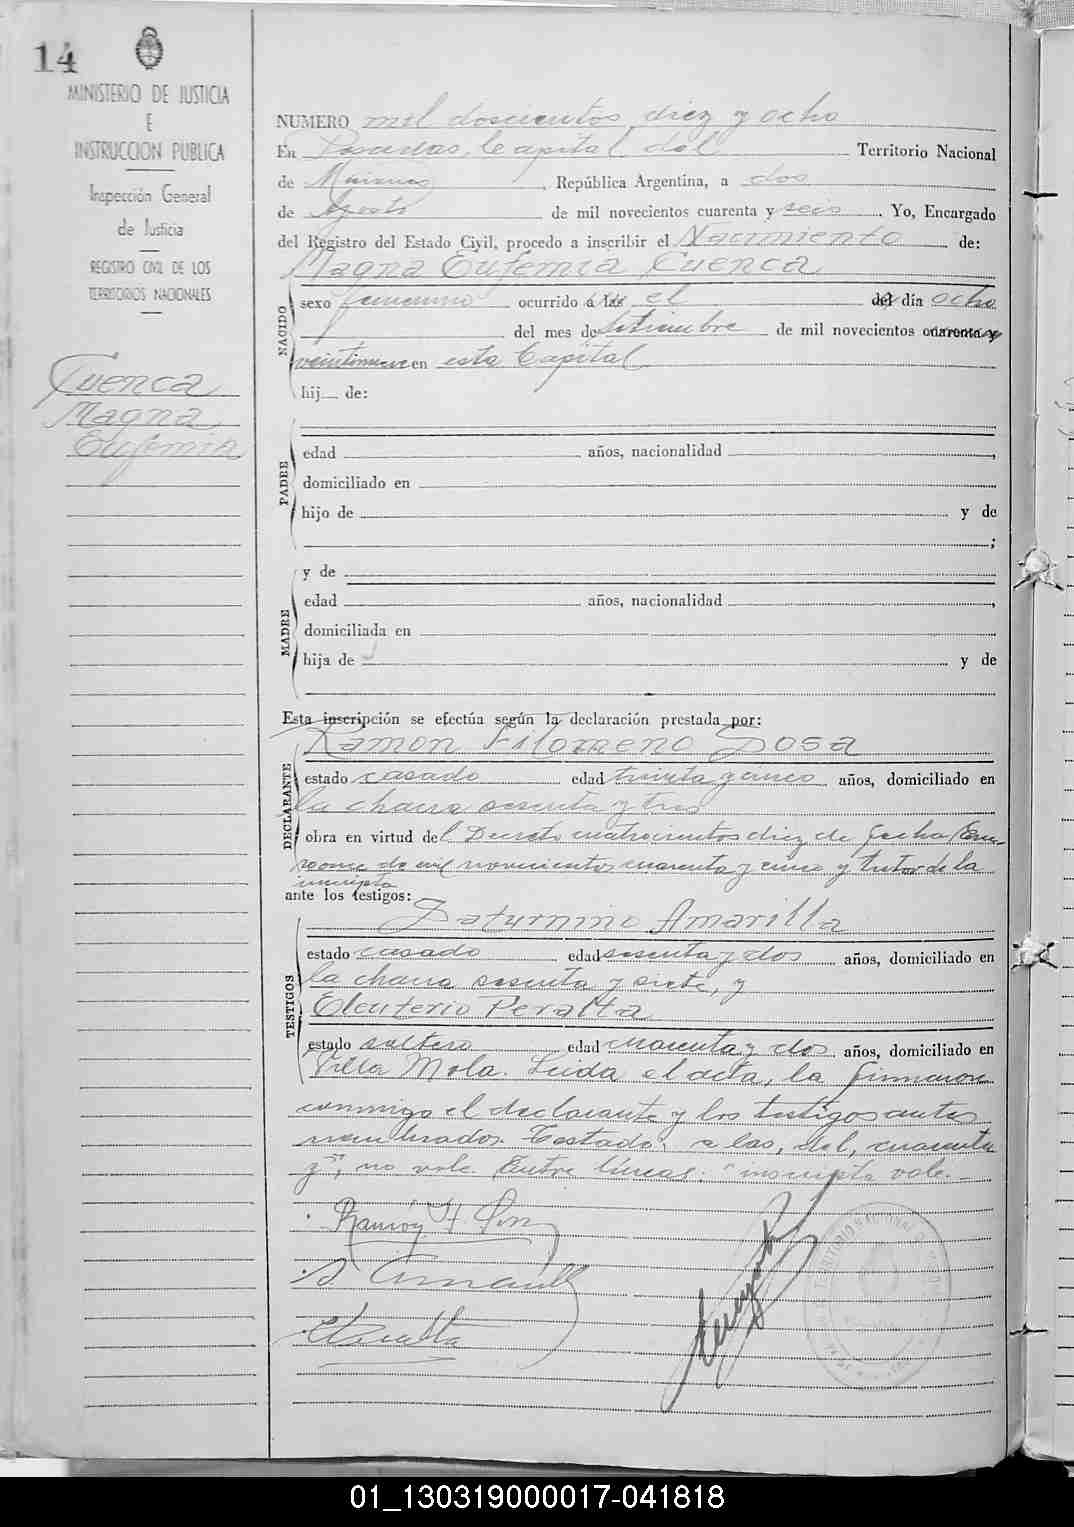 14
MINISTERIO DE JUSTICIA
E
INSTRUCCION PUBLICA
Inspección General
de Justicia
REGISTRO CIVIL DE LOS
TERRITORIOS NACIONALES
Cuenca
Magna
Eufemia
NUMERO mil doscientos diez y ocho
En Posadas, Capital del Territorio Nacional
de Misiones, República Argentina, a dos
de Agosto de mil novecientos cuarenta y seis. Yo, Encargado
del Registro del Estado Civil, procedo a inscribir el Nacimiento de:
Magna Eufemia Cuenca
NACIDO
sexo femenino ocurrido a las el del día ocho
del mes de Setiembre de mil novecientos cuarenta y
veintinueve en esta Capital
hij de:
PADRE
edad años, nacionalidad ,
domiciliado en
hijo de y de
;
y de
MADRE
edad años, nacionalidad ,
domiciliada en
hija de y de
Esta inscripción se efectúa según la declaración prestada por:
Ramon Filomeno Sosa
DECLARANTE
estado casado edad treinta y cinco años, domiciliado en
la chacra sesenta y tres
obra en virtud del Decreto cuatrocientos diez de fecha Ene-
ro once de mil novecientos cuarenta y cinco y tutor de la
inscripta
ante los testigos:
Saturnino Amarilla
TESTIGOS
estado casado edad sesenta y dos años, domiciliado en
la chacra sesenta y siete, y
Eleuterio Peralta
estado soltero edad cuarenta y dos años, domiciliado en
Villa Mola. Leida el acta, la firmaron
conmigo el declarante y los testigos antes
nombrados. Testado: a las, del, cuarenta
y", no vale. Entre líneas: "inscripta vale.-
Ramón F. Sosa
S. Amarilla
E Peralta
01_130319000017-041818